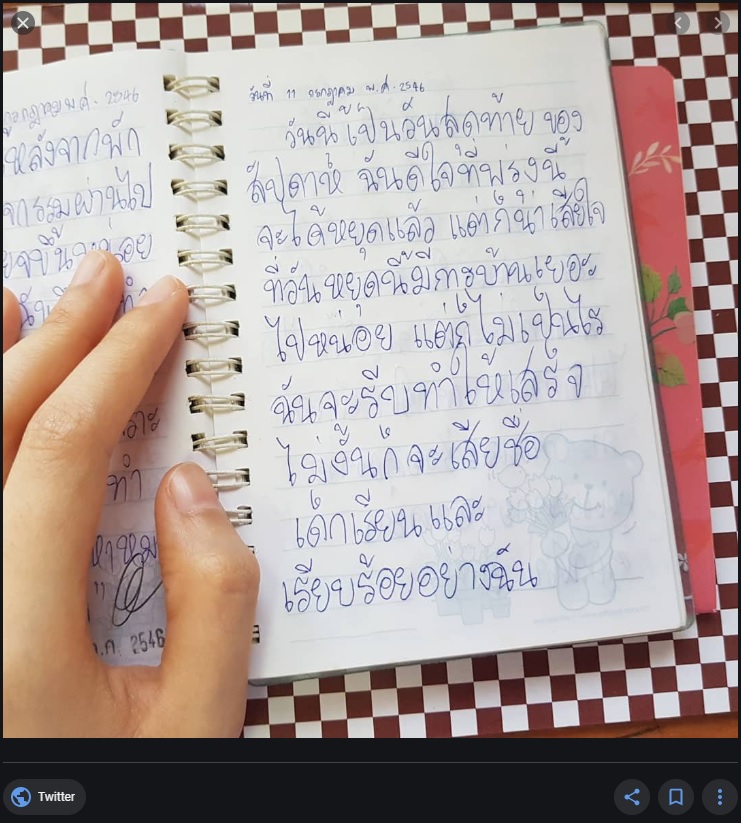 กรกฎาคม พ.ศ. 2546
หลังจากพัก
กรรมผ่านไป
ขึ้นหน่อย
ทำ
เราะ
ทำ
2546
วันที่ 11 กรกฎาคม พ.ศ. 2546
วันนี้เป็นวันสุดท้าย ของ
สัปดาห์ ฉันดีใจที่พรุ่งนี้
จะได้หยุดแล้ว แต่ก็น่าเสียใจ
ที่วันหยุดนี้มีการบ้านเยอะ
ไปหน่อย แต่ก็ไม่เป็นไร
ฉันจะรีบทำให้เสร็จ
ไม่งั้นก็จะเสียชื่อ
เด็กเรียน และ
เรียบร้อยอย่างฉัน
Twitter